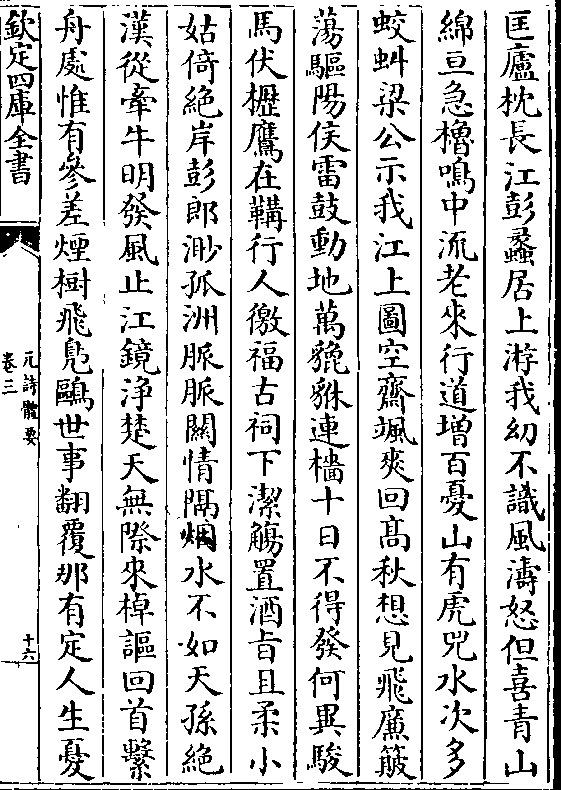 匡廬枕長江彭蠡居上游我幼不識風濤怒但喜青山
綿亘急櫓鳴中流老來行道增百憂山有虎兕水次多
蛟蚪梁公示我江上圖空齋颯爽回髙秋想見飛廉簸
蕩驅陽侯雷鼓動地萬貔貅連檣十日不得發何異駿
馬伏櫪鷹在鞲行人徼福古祠下潔觴置酒㫖且柔小
姑倚絶岸彭郎渺孤洲脈脈關情隔烟水不如天孫絶
漢從牽牛明發風止江鏡浄楚天無際來棹謳回首繫
舟處惟有參差煙樹飛鳧鷗世事翻覆那有定人生憂
欽定四庫全書
元詩體要
卷三
十六